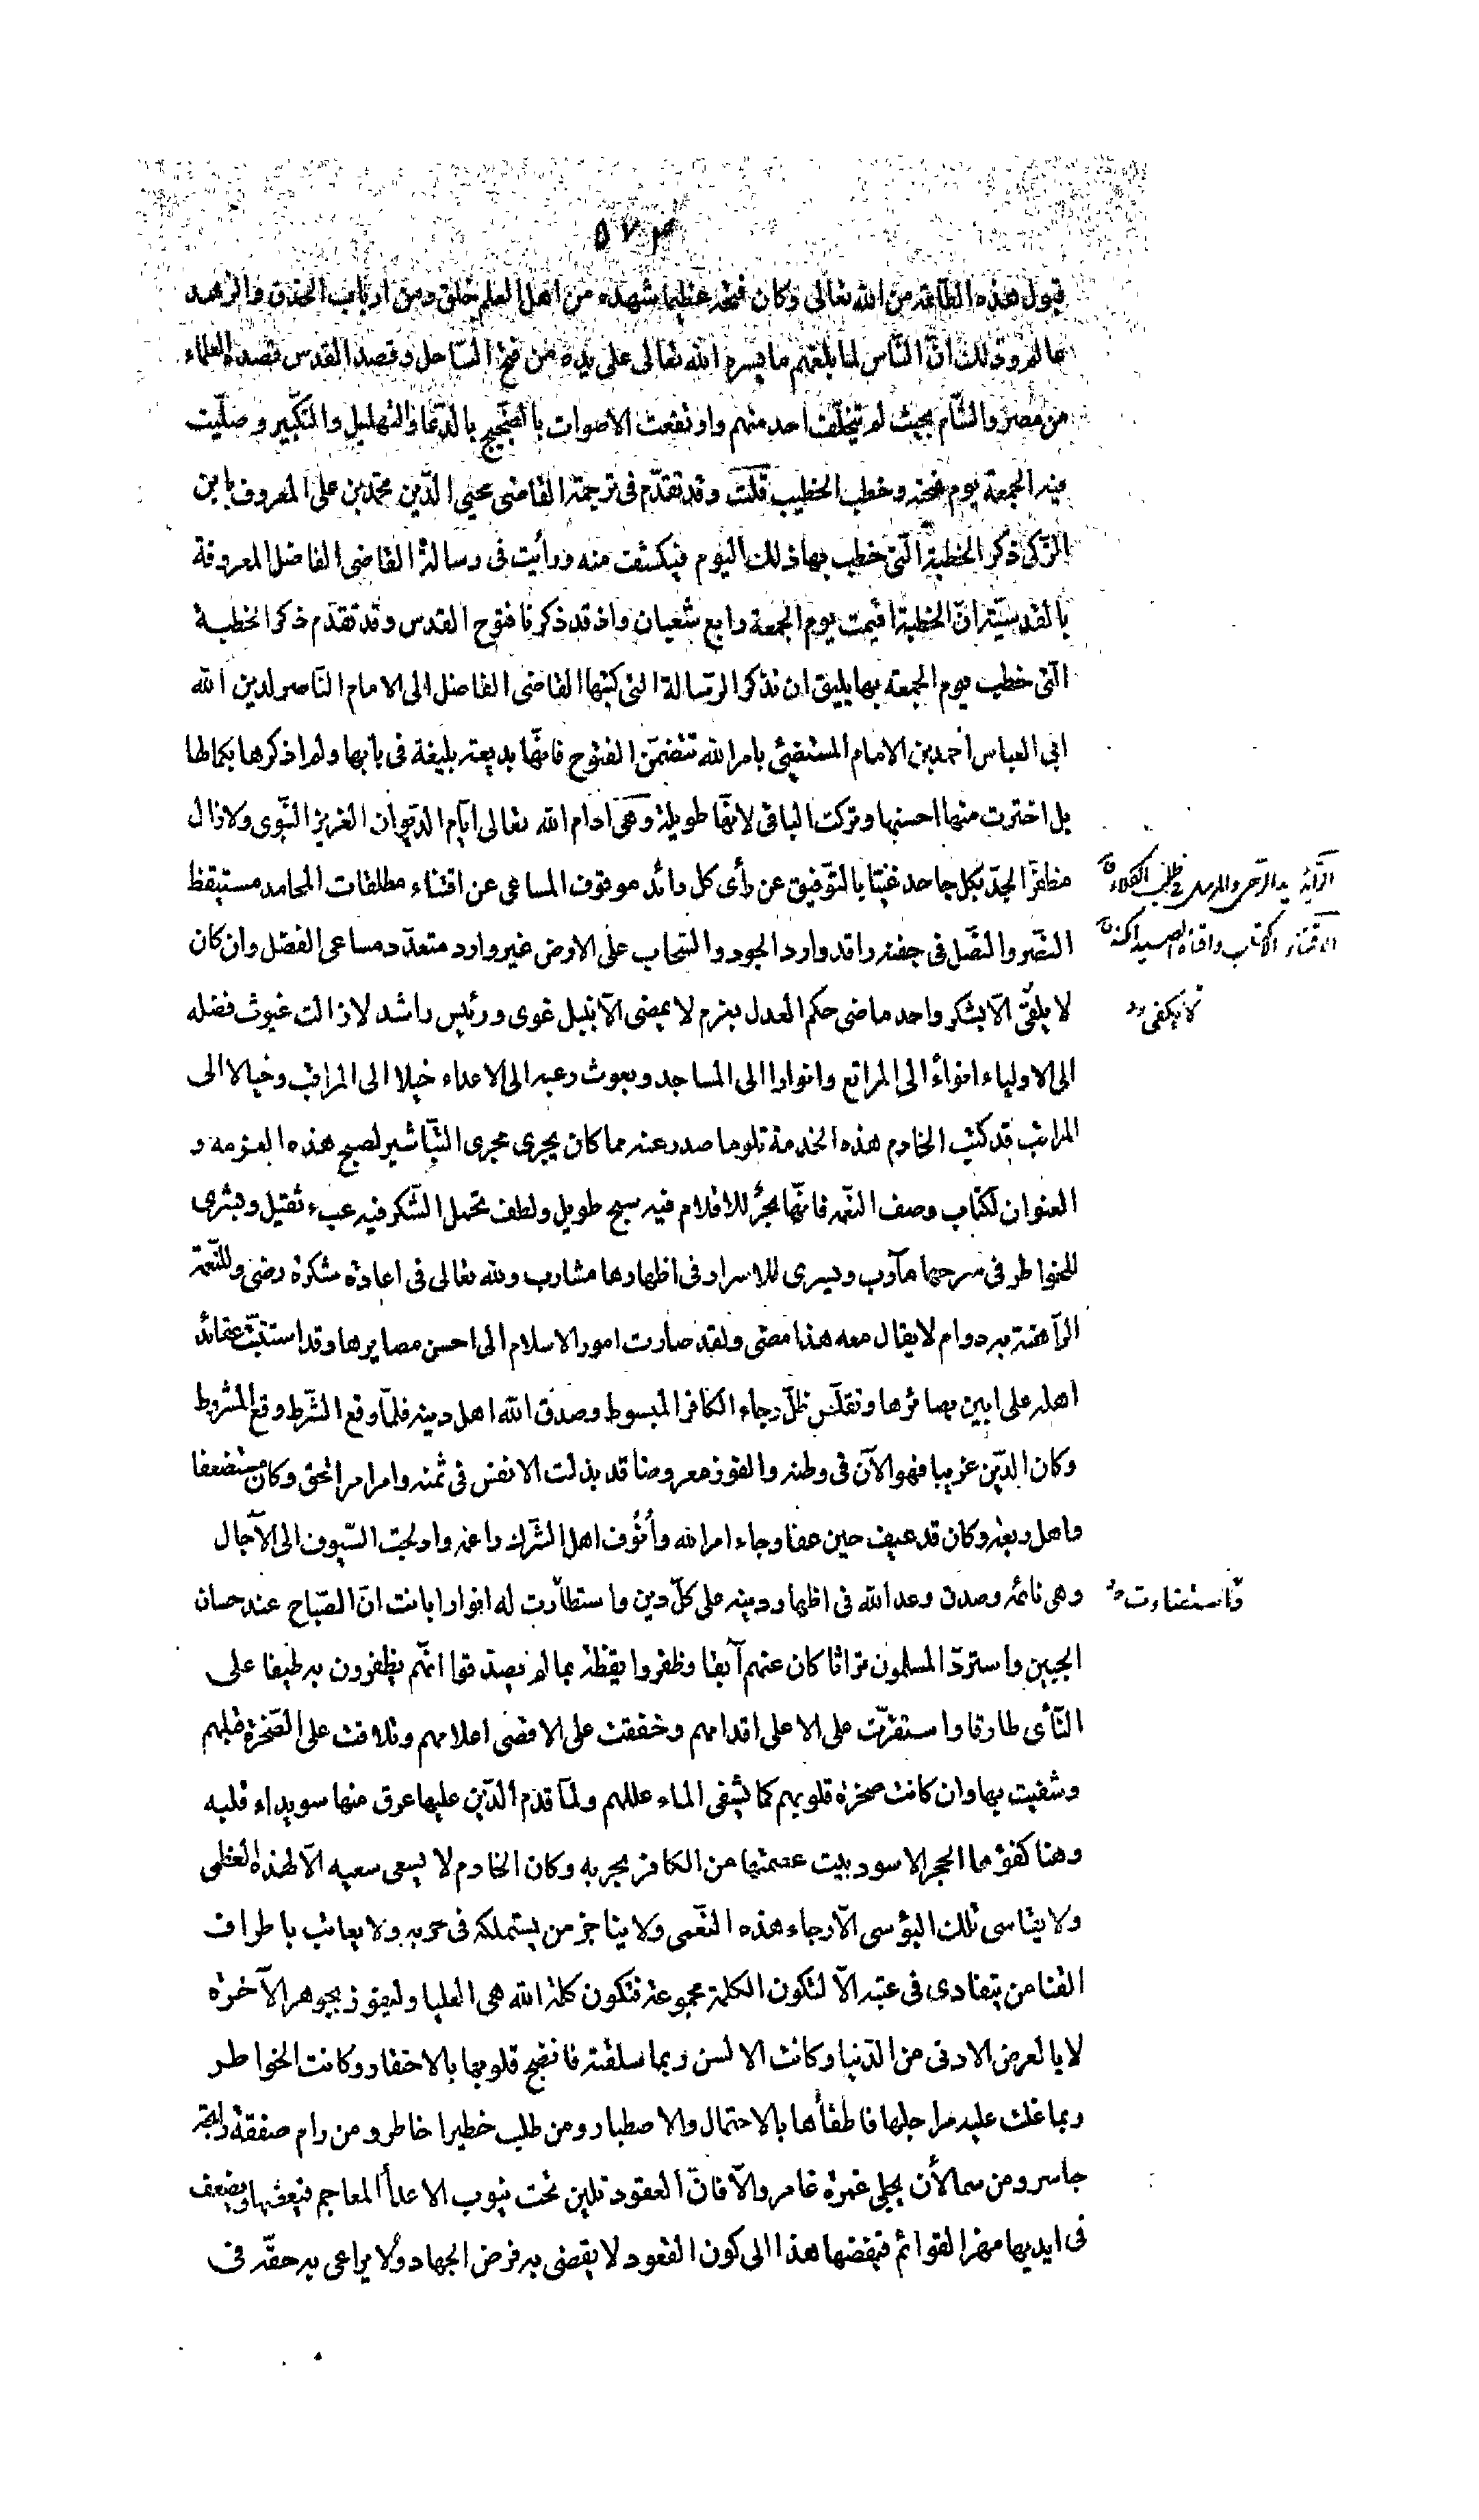 ٥٧٣
قبول هذه الطاعة من الله تعالى وكان فتحه عظيما شهده من اهل العلم خلق ومن ارباب الخرق والزهد
عالم وذلك انّ النّاس لما بلغهم ما يسره الله تعالى على يده من فتح السّاحل وقصد القدس قصده العلماء
من مصر والشّام بحيث لم يتخلّف احد منهم وارتفعت الاصوات بالضّجيج بالدّعا والتهليل والتكبير وصلّيت
فيه الجمعة يوم فتحه وخطب الخطيب قلت وقد تقدّم فى ترجمة القاضى محيى الدّين محمد بن على المعروف بابن
الزّكى ذكر الخطبة الّتى خطب بها ذلك اليوم فيكشف منه ورأيت فى رسالة القاضى الفاضل المعروفة
بالقدسيّة انّ الخطبة اقيمت يوم الجمعة رابع شعبان واذ قد ذكرنا فتوح القدس وقد تقدّم ذكر الخطبة
الّتى خطب يوم الجمعة بها يليق ان نذكر الرّسالة التى كتبها القاضى الفاضل الى الامام النّاصر لدين الله
ابى العباس أحمد بن الامام المستضئ بامر الله تتضمّن الفتوح فانّها بديعة بليغة فى بابها ولم اذكرها بكمالها
بل اخترت منها احسنها وتركت الباقى لانّها طويلة وهى ادام الله تعالى ايّام الدّيوان العزيز النّبوى ولا زال
مظفّر الجدّ بكل جاحد غنيّا بالتّوفيق عن رأى كل رائد موقوف المساعى عن اقتناء مطلقات المحامد مستيقظ
النّصر والنّصل فى جفنه راقد وارد الجود والسّحاب على الارض غير وارد متعدّد مساعى الفضل وان كان
لا يلقى الّا بشكر واحد ماضى حكم العدل بعزم لا يمضى الّا بنبل غوى ورئيس راشد لا زالت غيوث فضله
لا يكفى
الى الاولياء انواءً الى المراتع وانوارا الى المساجد وبعوث رعبه الى الاعداء خيلا الى المراقب وخيالا الى
المراتب قد كتب الخادم هذه الخدمة تلو ما صدر عنه مما كان يجرى مجرى التّباشير لصبح هذه العزمة و
العنوان لكتاب وصف النّعمة فانّها بحرٌ للاقلام فيه سبح طويل ولطف تحمل الشّكر فيه عبء ثقيل وبشرى
للخواطر فى شرحها مآرب ويسرى للاسرار فى اظهارها مشارب ولله تعالى فى اعادة شكره رضى وللنّعمة
الرّاهنة به دوام لا يقال معه هذا مضى ولقد صارت امور الاسلام الى احسن مصايرها وقد استتبّت عقائد
اهله على ابين بصائرها وتقلّص ظلّ رجاء الكافر المبسوط وصدق الله اهل دينه فلمّا وقع الشّرط وقع المشروط
وكان الدّين غريبا فهو الآن فى وطنه والفوز معروضا قد بذلت الانفس فى ثمنه وامر امر الحق وكان مستضعفا
واهل ربعه وكان قد عيف حين عفا وجاء امر الله وأُنُوف اهل الشّرك راغمة وادلجت السّيوف الى الآجال
وهى نائمه وصدق وعد الله فى اظهار دينه على كلّ دين واستطارت له انوار ابانت انّ الصّباح عند حسان
واستضاءت
الجبين واستردّ المسلمون تراثا كان عنهم آبقا وظفروا يقظة بما لم يصدّقوا انّهم يظفرون به طيفا على
النّأى طارقا واستقرّت على الاعلى اقدامهم وخفقت على الاقصى اعلامهم وتلاقت على الصّخرة قبلهم
وشفيت بها وان كانت صخرة قلوبهم كما يشفى الماء عللهم ولمّا قدم الدّين عليها عرق منها سويداء قلبه
وهنا كفؤها الحجر الاسود بيت عصمتها من الكافر بحربه وكان الخادم لا يسعى سعيه الّا لهذه العظمى
ولا يقاسى تلك البؤسى الّا رجاء هذه النّعمى ولا يناجز من يستملكه فى حربه ولا يعاتب باطراف
القنا من يتفادى فى عتبه الّا لتكون الكلمة مجموعة فتكون كلمة الله هى العليا وليفوز بجوهر الآخرة
لا بالعرض الادنى من الدّنيا وكانت الالسن ربما سلقته فانضج قلوبها بالاحقار وكانت الخواطر
ربما غلت عليه مراجلها فاطفأها بالاحتمال والاصطبار ومن طلب خطيرا خاطر ومن رام صفقة رابحة
جاسر ومن سما لأن يجلى غمرة غامر والّا فانّ العقود تلين تحت نيوب الاعدأ المعاجم فتعضّها ويضعف
فى ايديها مهر القوائم فتفضها هذا الى كون القعود لا يقضى به فرض الجهاد ولا يراعى به حقّه فى